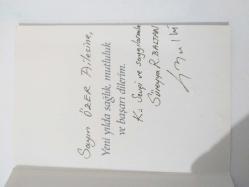 Sayın ÖZER Ailesine,
Yeni yılda sağlık, mutluluk
ve başarı dilerim.
Sevgi ve saygılarımla
Süreyya R. BALTAN